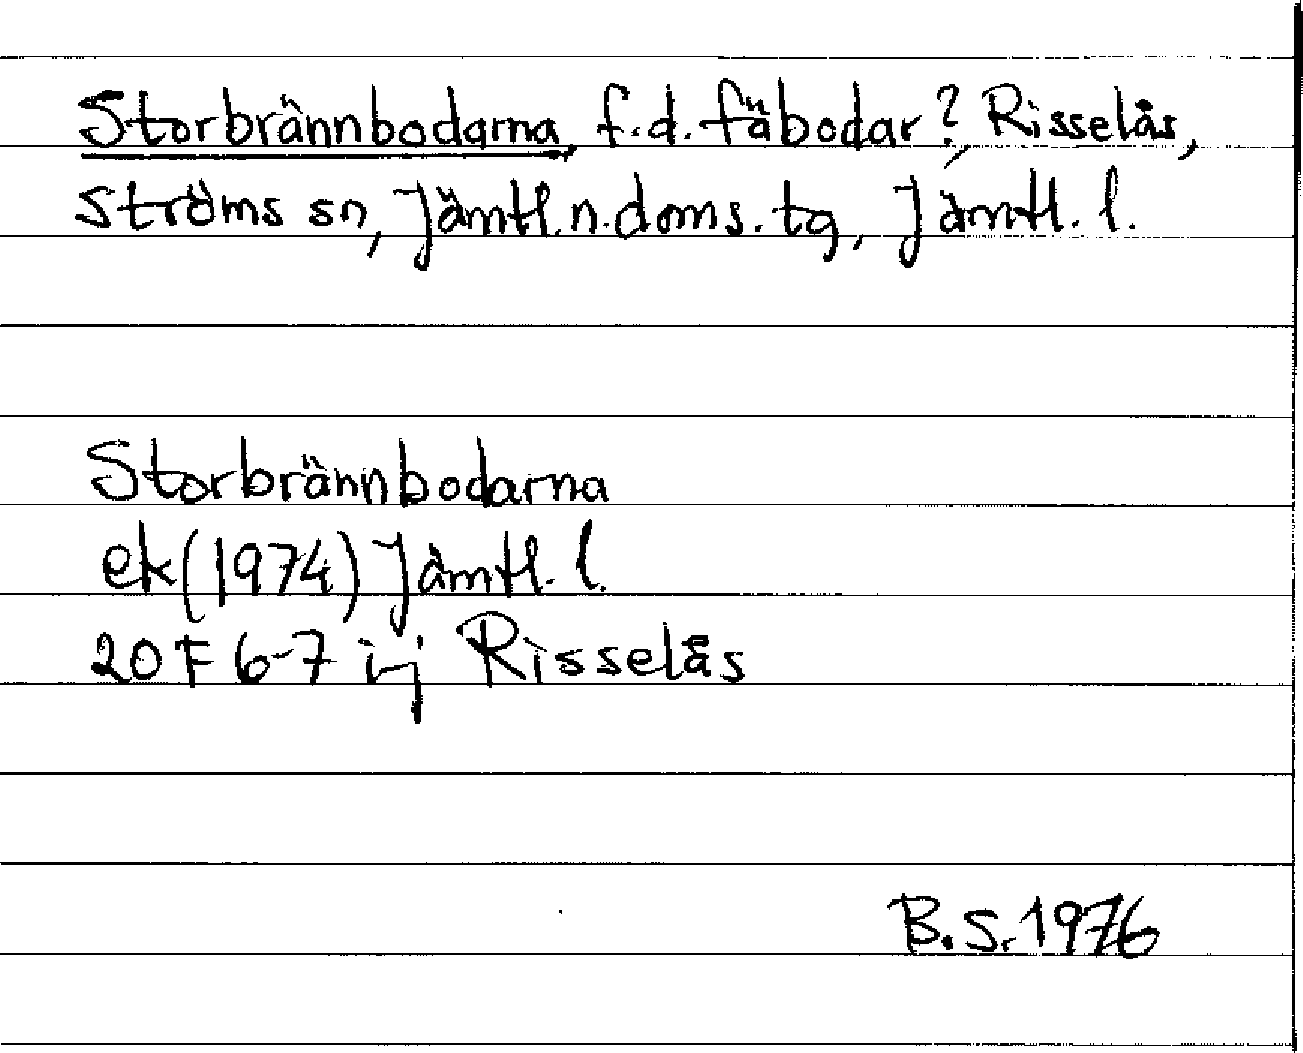 Storbrännbodarna, f.d. fäbodar?, Risselås,
Ströms sn, Jämtl. n. doms. tg, Jämtl. l.
Storbrännbodarna
ek (1974) Jämtl. l.
20 F 6-7 ij Risselås
B.S. 1976